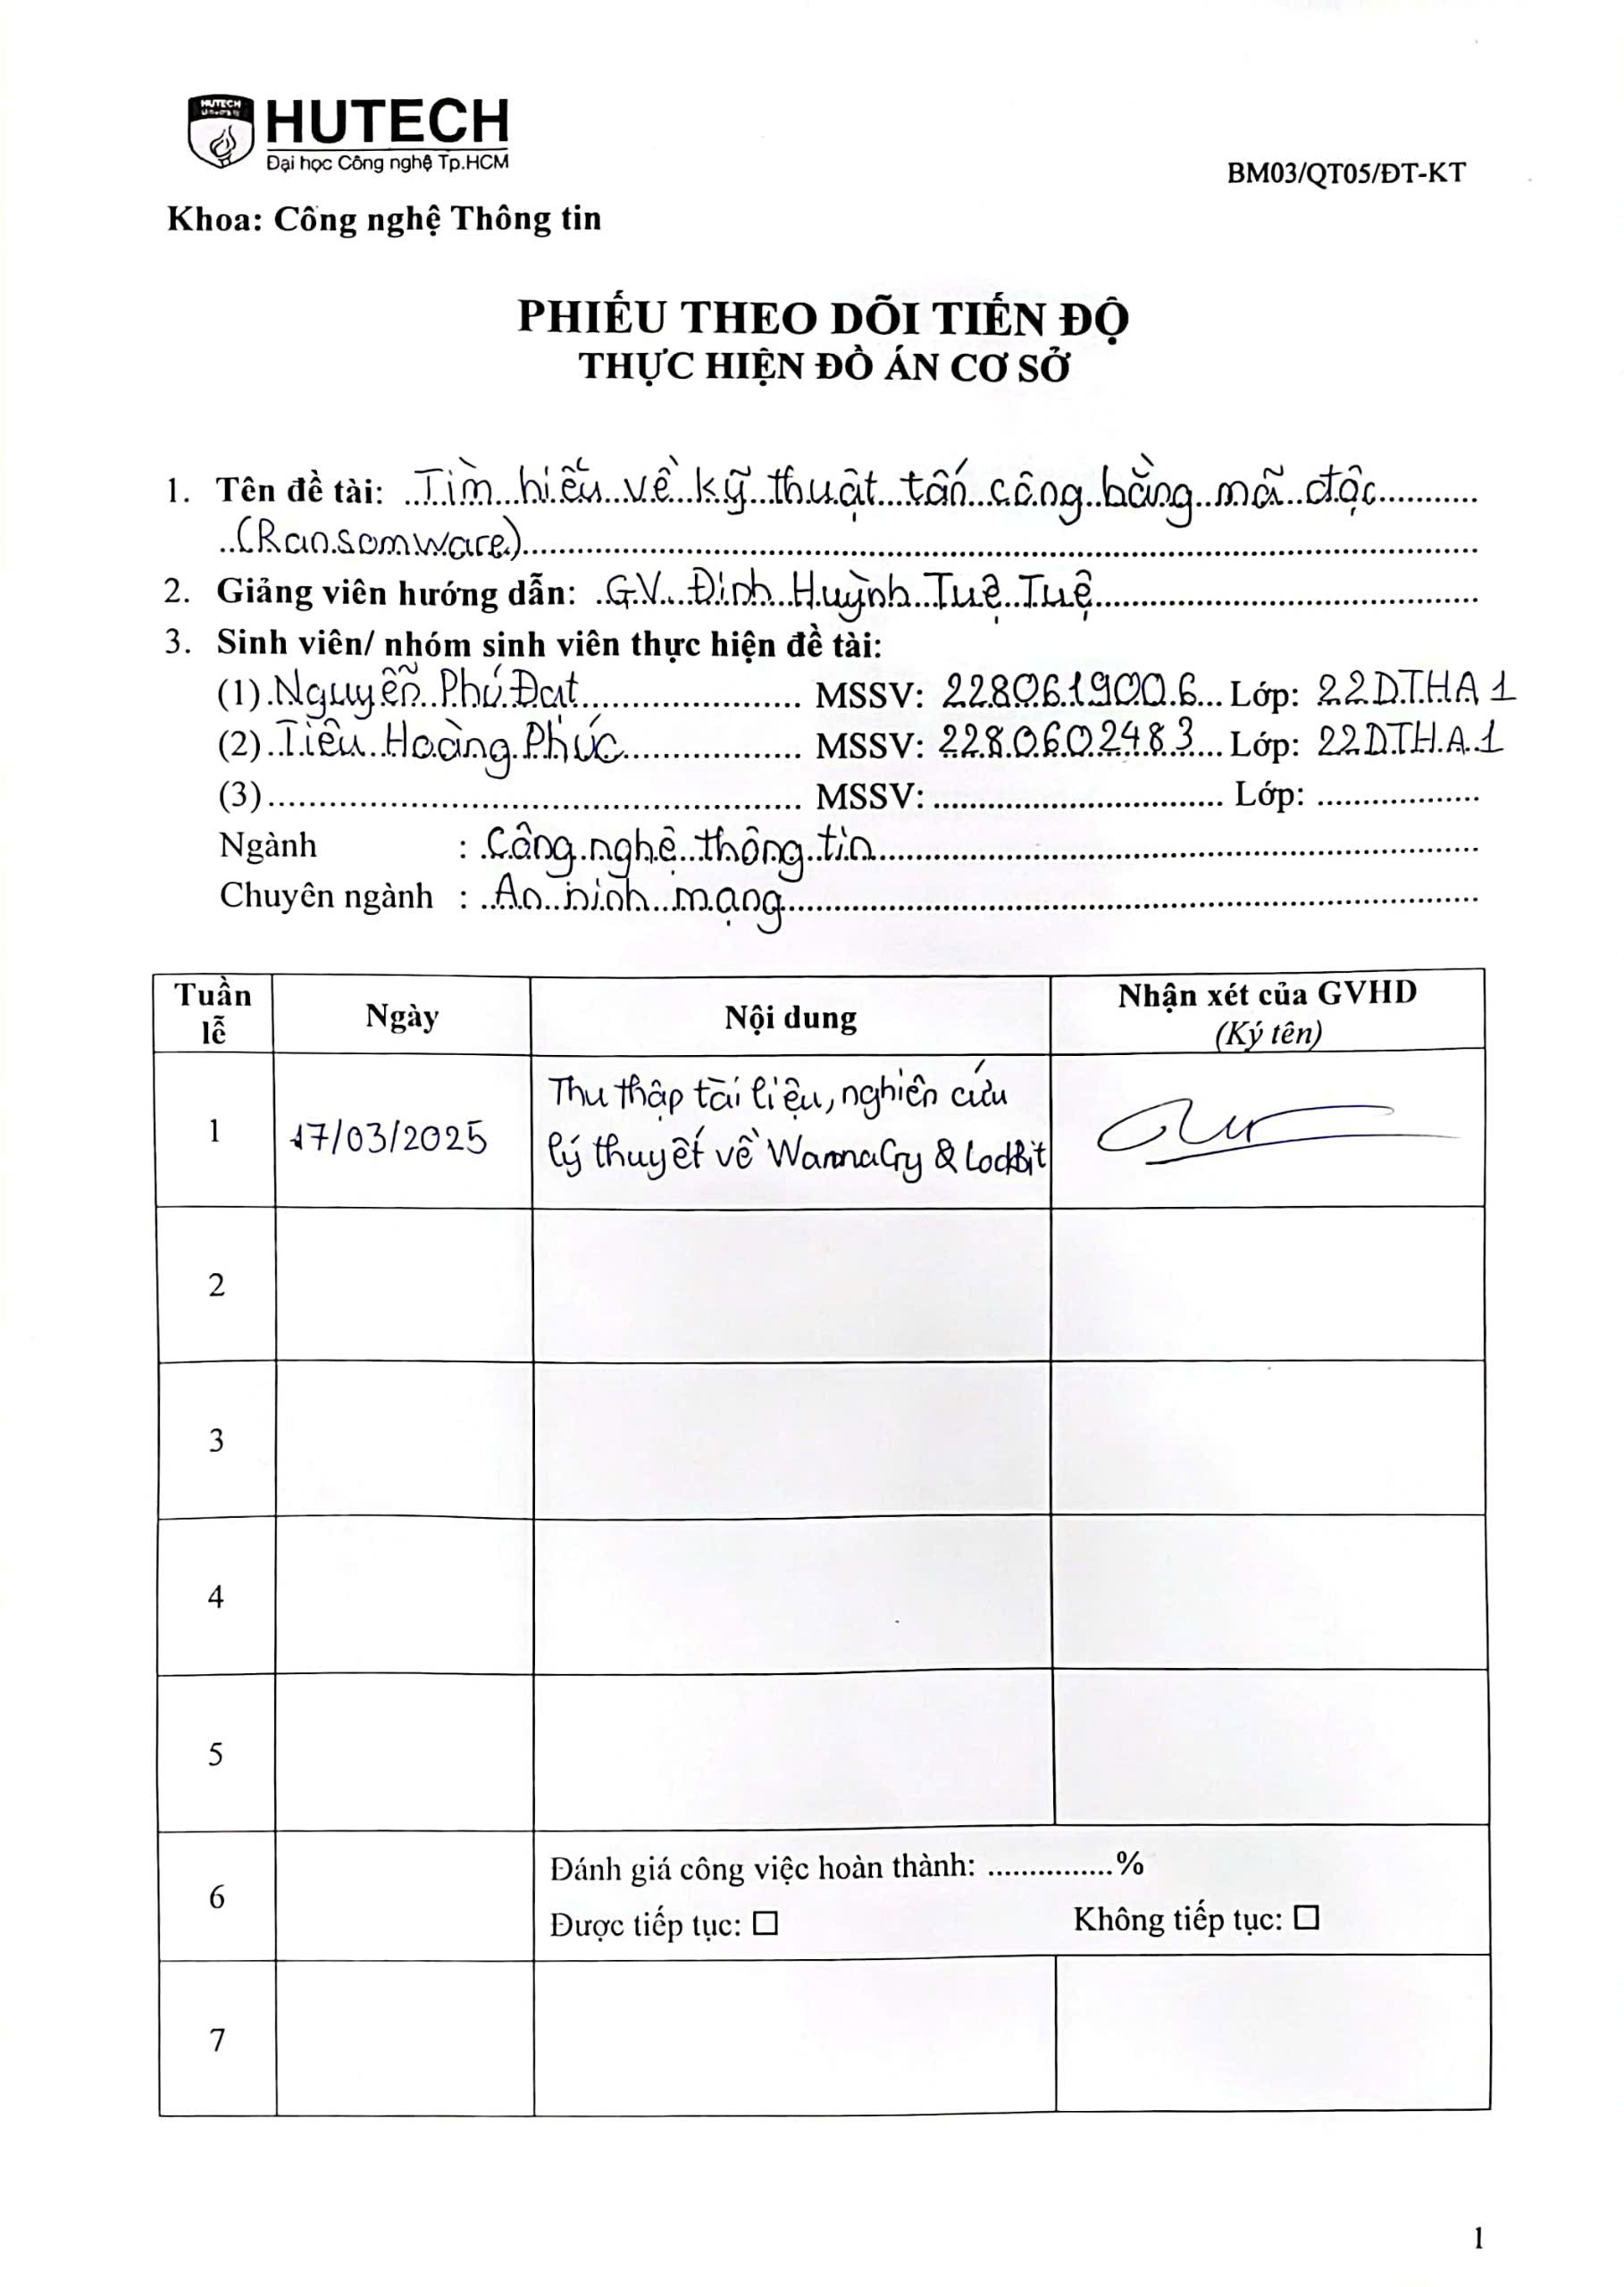 HUTECH
Đại học Công nghệ Tp.HCM
BM03/QT05/ĐT-KT
Khoa: Công nghệ Thông tin
PHIẾU THEO DÕI TIẾN ĐỘ
THỰC HIỆN ĐỒ ÁN CƠ SỞ
1. Tên đề tài: Tìm hiểu về kỹ thuật tấn công bằng mã độc
(Ransomware)
2. Giảng viên hướng dẫn: GV. Đinh Huỳnh Tuệ Tuệ
3. Sinh viên/ nhóm sinh viên thực hiện đề tài:
(1) Nguyễn Phú Đạt MSSV: 2280619006 Lớp: 22DTHA1
(2) Tiêu Hoàng Phúc MSSV: 2280602483 Lớp: 22DTHA1
(3) MSSV: Lớp:
Ngành : Công nghệ thông tin
Chuyên ngành : An ninh mạng
Tuần lễ Ngày Nội dung Nhận xét của GVHD
(Ký tên)
1 17/03/2025 Thu thập tài liệu, nghiên cứu
lý thuyết về WannaCry & LockBit
2
3
4
5
6 Đánh giá công việc hoàn thành: ...............%
Được tiếp tục: ☐ Không tiếp tục: ☐
7
1